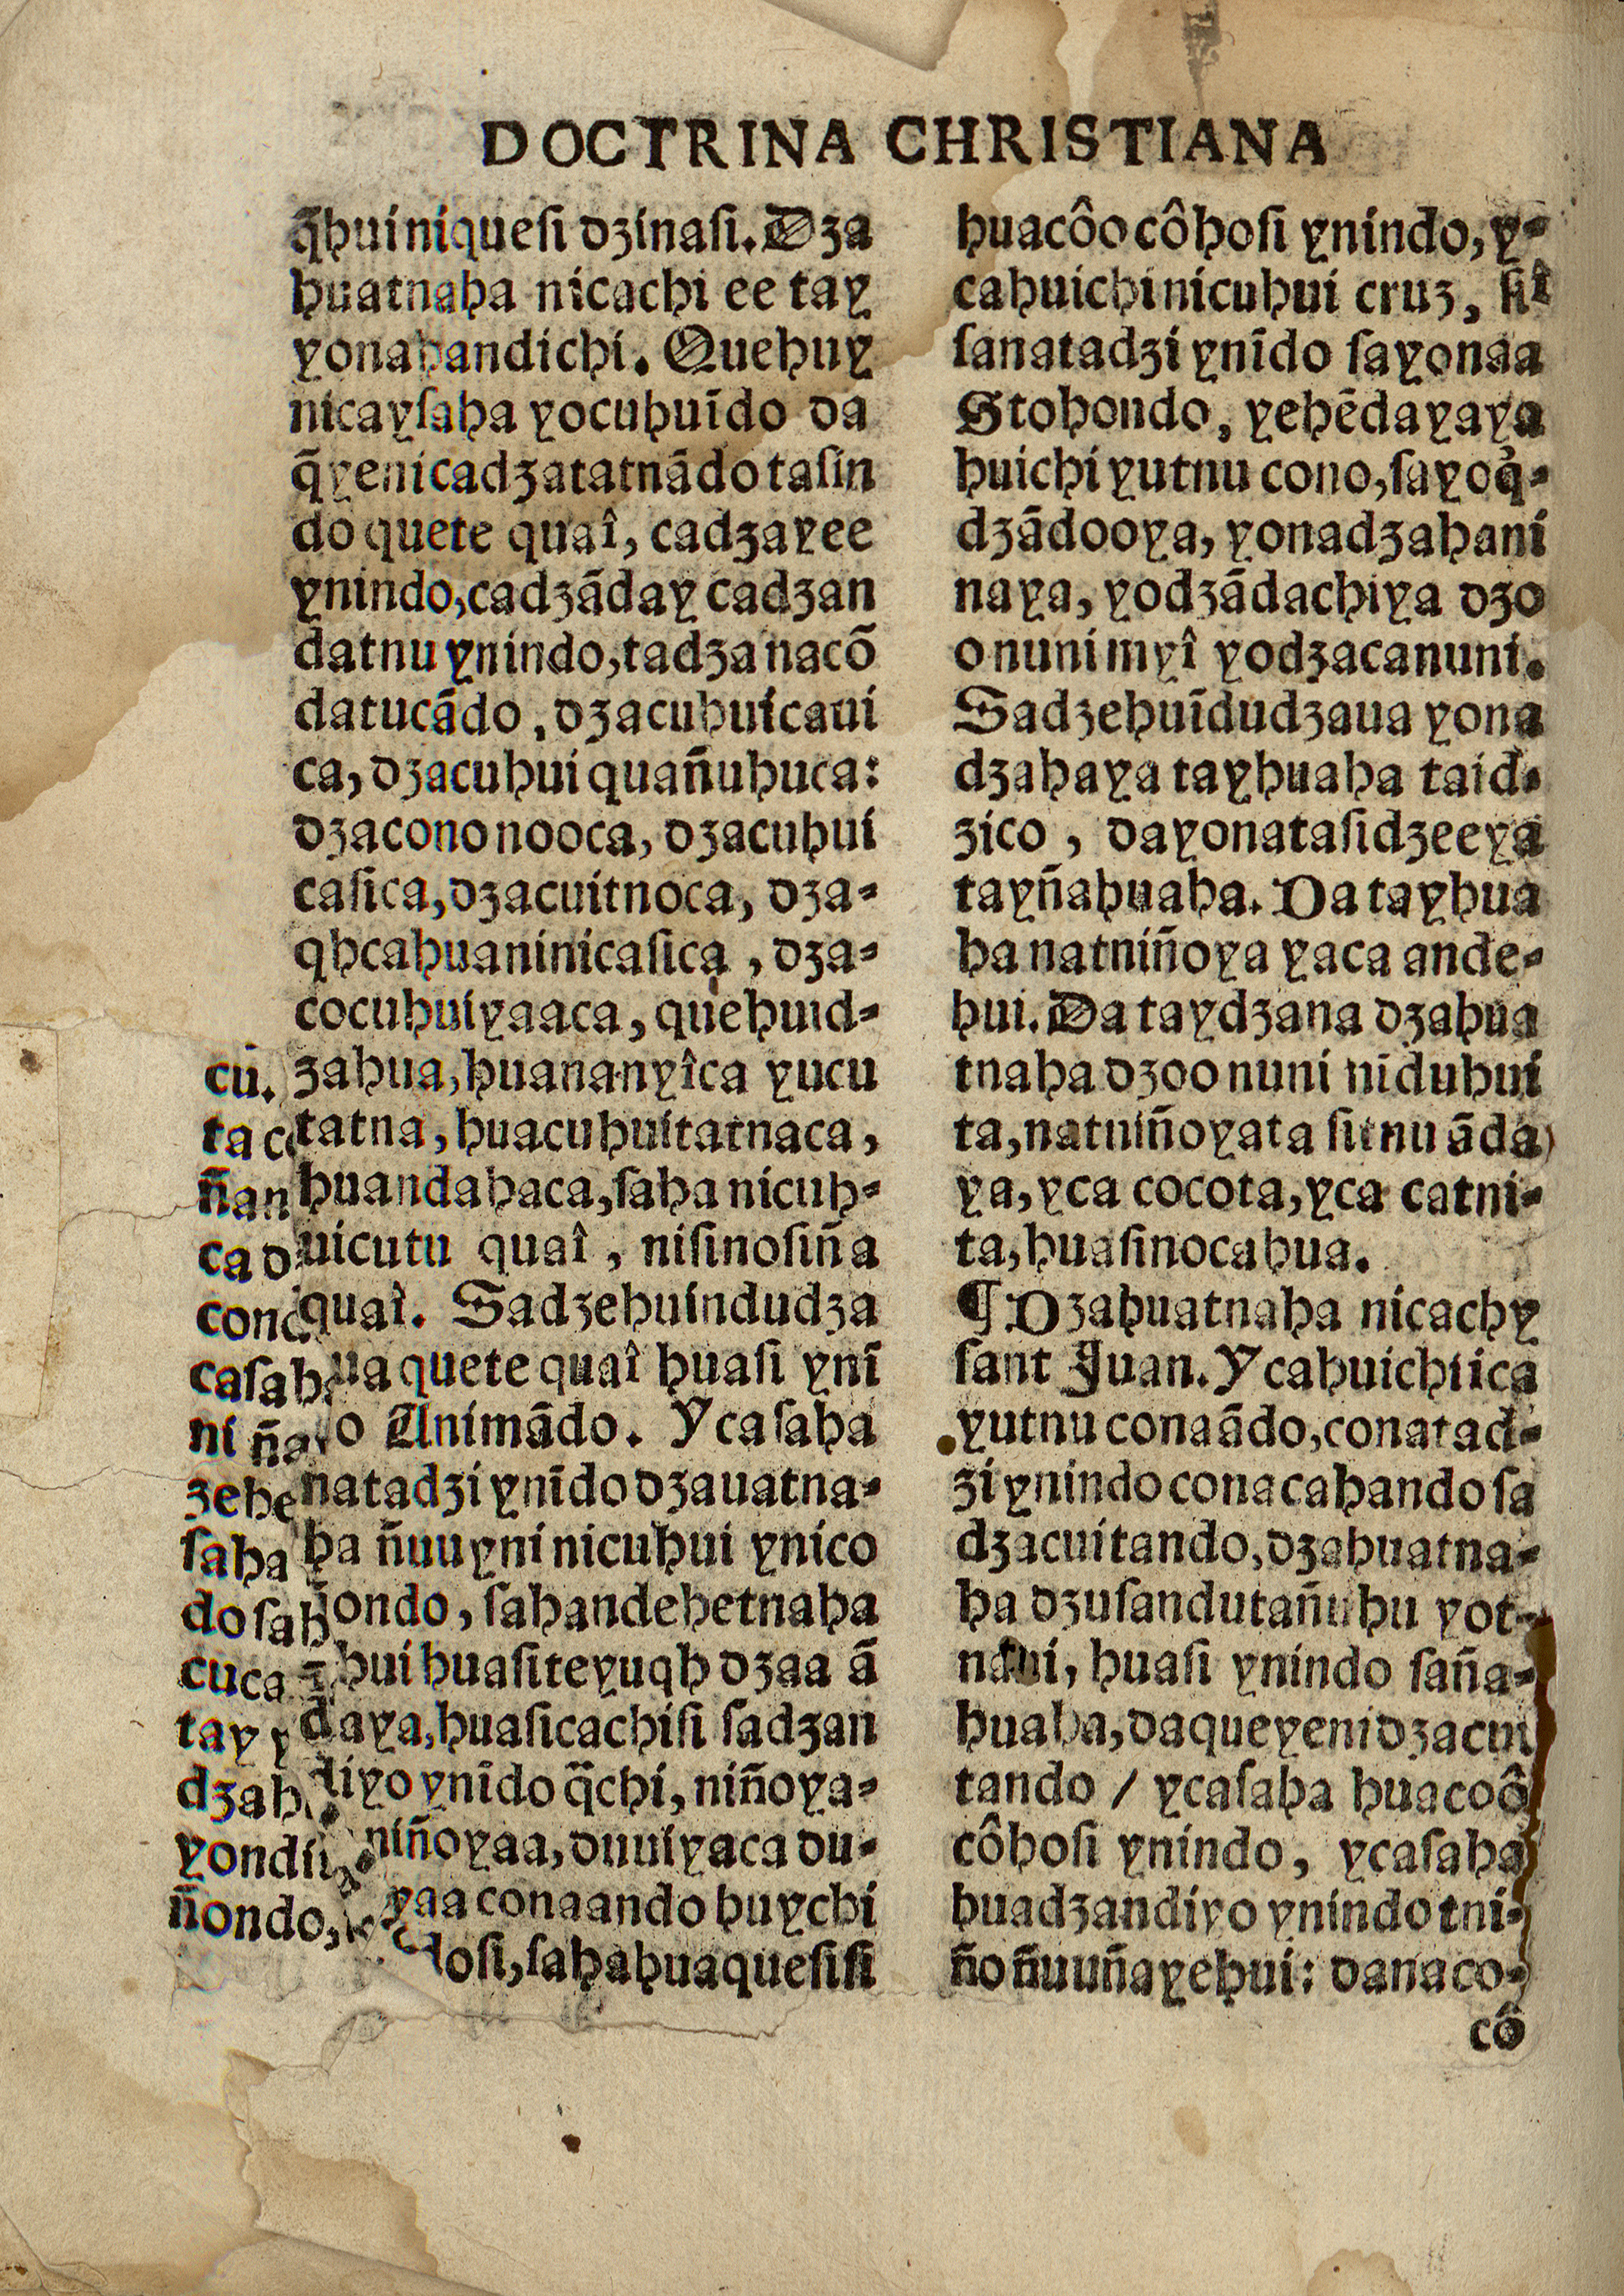 DOCTRINA CHRISTIANA
q̃huiniquesi dzinasi. Dza
huatnaha nicachi ee tay
yonahandichi. Quehuy
nicaysaha yocuhuīdo da
q̄yenicadzatatnādo tasin
do quete quaî, cadzayee
ynindo, cadzāday cadzan
datnu ynindo, tadza nacō
datucādo, dzacuhuicaui
ca, dzacuhui quañuhuca:
dzacono nooca, dzacuhui
casica, dzacuitnoca, dza-
qhcahuaninicasica, dza-
cocuhuiyaaca, quehuid-
zahua, huananyîca yucu
tatna, huacuhuitatnaca,
huandahaca, saha nicuh-
uicutu quaî, nisinosiña
quaî. Sadzehuindudza
ua quete quaî huasi ynī
o Animādo. Y casaha
natadzi ynīdo dzauatna-
ha ñuuyni nicuhui ynico
ondo, sahandehetnaha
hui huasiteyuqh dzaa ā
daya, huasicachisi sadzan
diyo ynīdo q̄chi, niñoya-
niñoyaa, duuiyaca du-
yaa conaando huychi
dosi, sahahuaquesisi
cū.
ta
ñan
ca
casah
ni ña
zehe
saha
do sah
cuca
tay
dzah
yondii
ñondo,
huacôo côhosi ynindo, y-
cahuichi nicuhui cruz,
sanatadzi ynīdo sayonaa
Stohondo, yehēdayaya
huichi yutnu cono, sayoq̄-
dzādooya, yonadzahani
naya, yodzādachiya dzo
o nuni myî yodzacanuni.
Sadzehuīdudzaua yona
dzahaya tayhuaha taid-
zico, dayonatasidzeeya
tayñahuaha. Da tayhua
ha natniñoya yaca ande-
hui. Da taydzana dzahua
tnaha dzoo nuni nīduhui
ta, natniñoyata sitnu āda
ya, yca cocota, yca catni-
ta, huasinocahua.
¶ Dzahuatnaha nicachy
sant Juan. Y cahuichi ica
yutnu conaādo, conatad-
zi ynindo conacahando sa
dzacuitando, dzahuatna-
ha dzusandutañuhu yot-
huasi ynindo saña-
huaha, daqueyeni dzacui
tando / ycasaha huacoô
côhosi ynindo, ycasaha
huadzandiyo ynindo tni-
ño ñuuñayehui: danaco-
cô